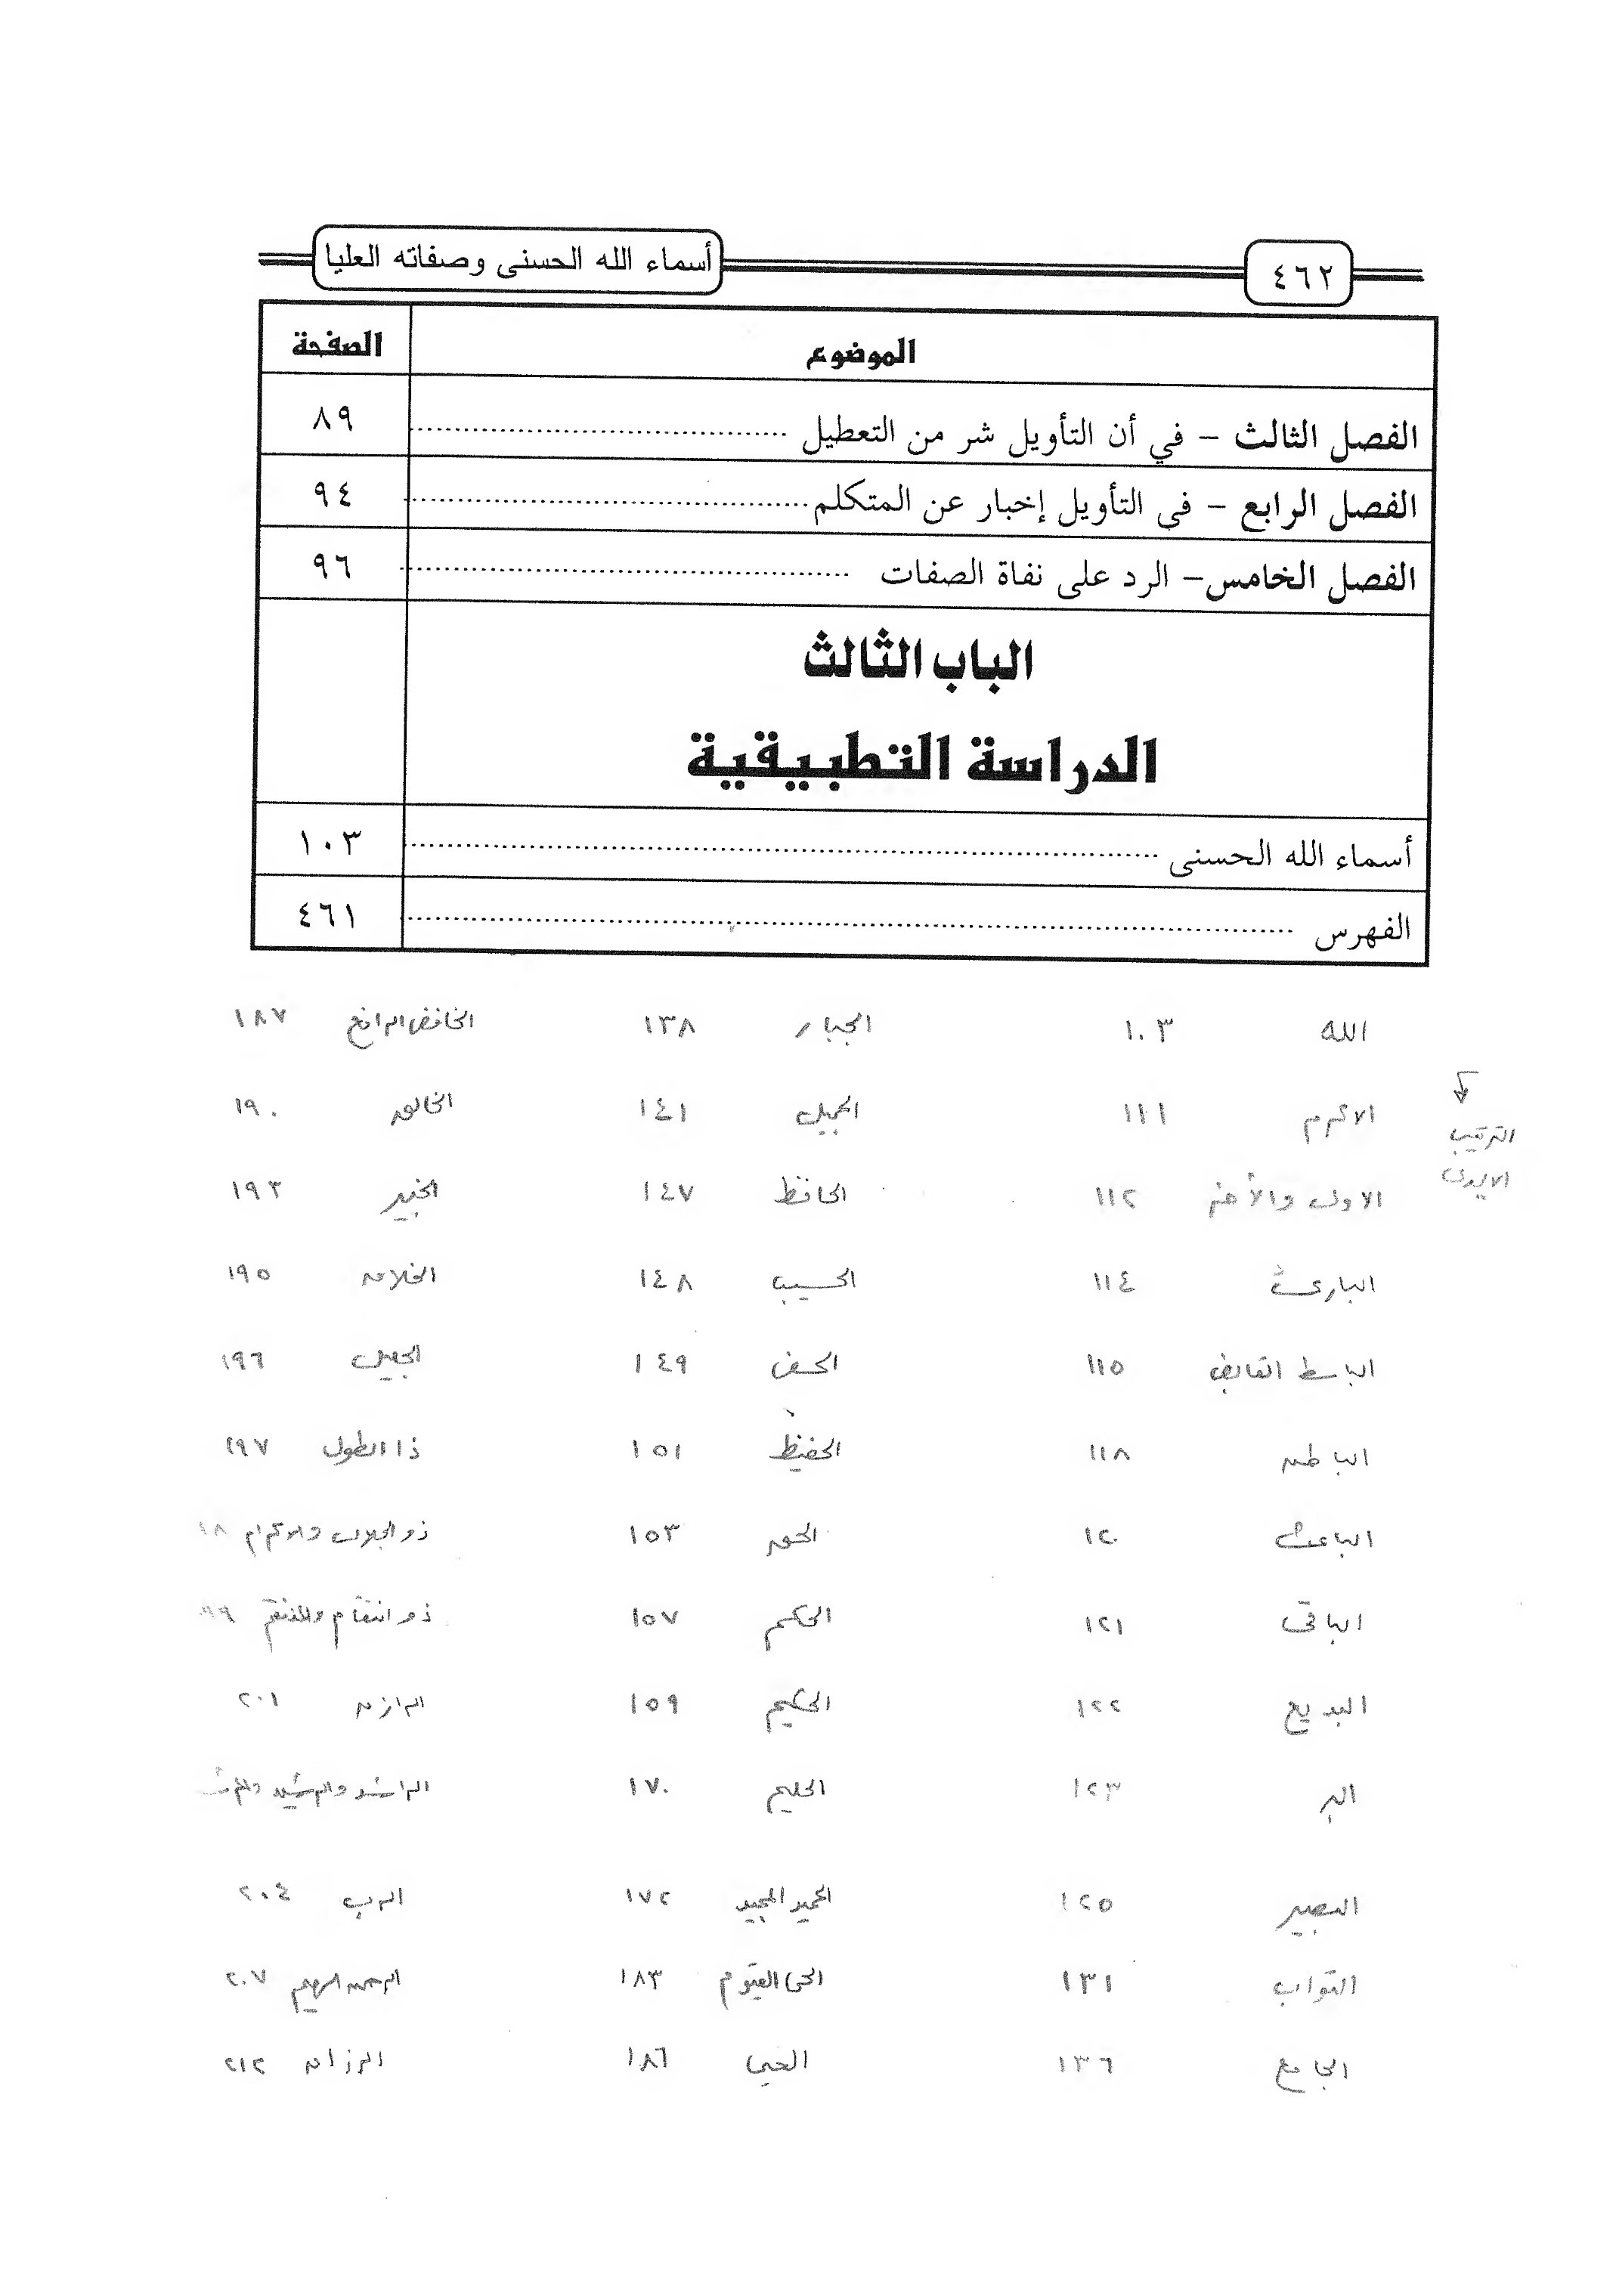 ٤٦٢ أسماء الله الحسنى وصفاته العليا
الموضوع الصفحة
الفصل الثالث – في أن التأويل شر من التعطيل ٨٩
الفصل الرابع – في التأويل إخبار عن المتكلم ٩٤
الفصل الخامس– الرد على نفاة الصفات ٩٦
الباب الثالث
الدراسة التطبيقية
أسماء الله الحسنى ١٠٣
الفهرس ٤٦١
الله ١٠٣ الجبار ١٣٨ الخافض الرافع ١٨٧
الاكرم ١١١ الجميل ١٤١ الخالق ١٩٠
الترتيب
الاول والأخر ١١٢ الحافظ ١٤٧ الخبير ١٩٣
البارئ ١١٤ الحسيب ١٤٨ الخلاق ١٩٥
الباسط القابض ١١٥ ١٤٩ ١٩٦
الباطن ١١٨ الحفيظ ١٥١ ذا الطول ١٩٧
الباعث ١٢٠ الحق ١٥٣ ذو الجلال والاكرام
الباقى ١٢١ الحكم ١٥٧ ذو انتقام والمنتقم
البديع ١٢٢ الحكيم ١٥٩ الرازق ٢٠١
البر ١٢٣ الحليم ١٧٠ الراشد والرشيد
البصير ١٢٥ الحميد المجيد ١٧٢ الرب ٢٠٤
التواب ١٣١ الحى القيوم ١٨٣ الرحمن الرحيم ٢٠٧
الجامع ١٣٦ الحيى ١٨٦ الرزاق ٢١٢